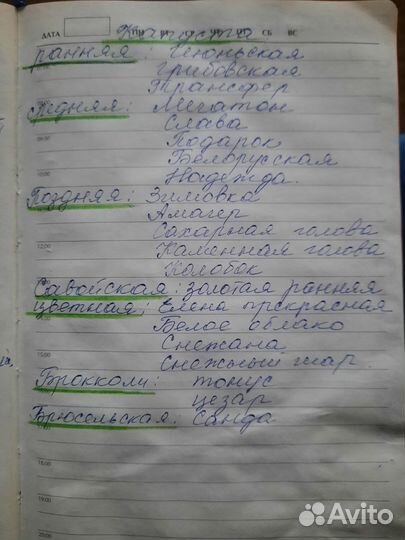 ДАТА Капуста СБ ВС
ранняя: Июньская
Грибовская
Трансфер
средняя: Мегатон
Слава
Подарок
Белорусская
Надежда.
Поздняя: Зимовка
Амагер
Сахарная голова
12:00 Каменная голова
Колобок
Савойская: золотая ранняя
цветная: Елена прекрасная
Белое облако
Снежана
Снежный шар
Брокколи: тонус
цезар
Брюсельская: Санда
18:00
19:00
20:00
Avito